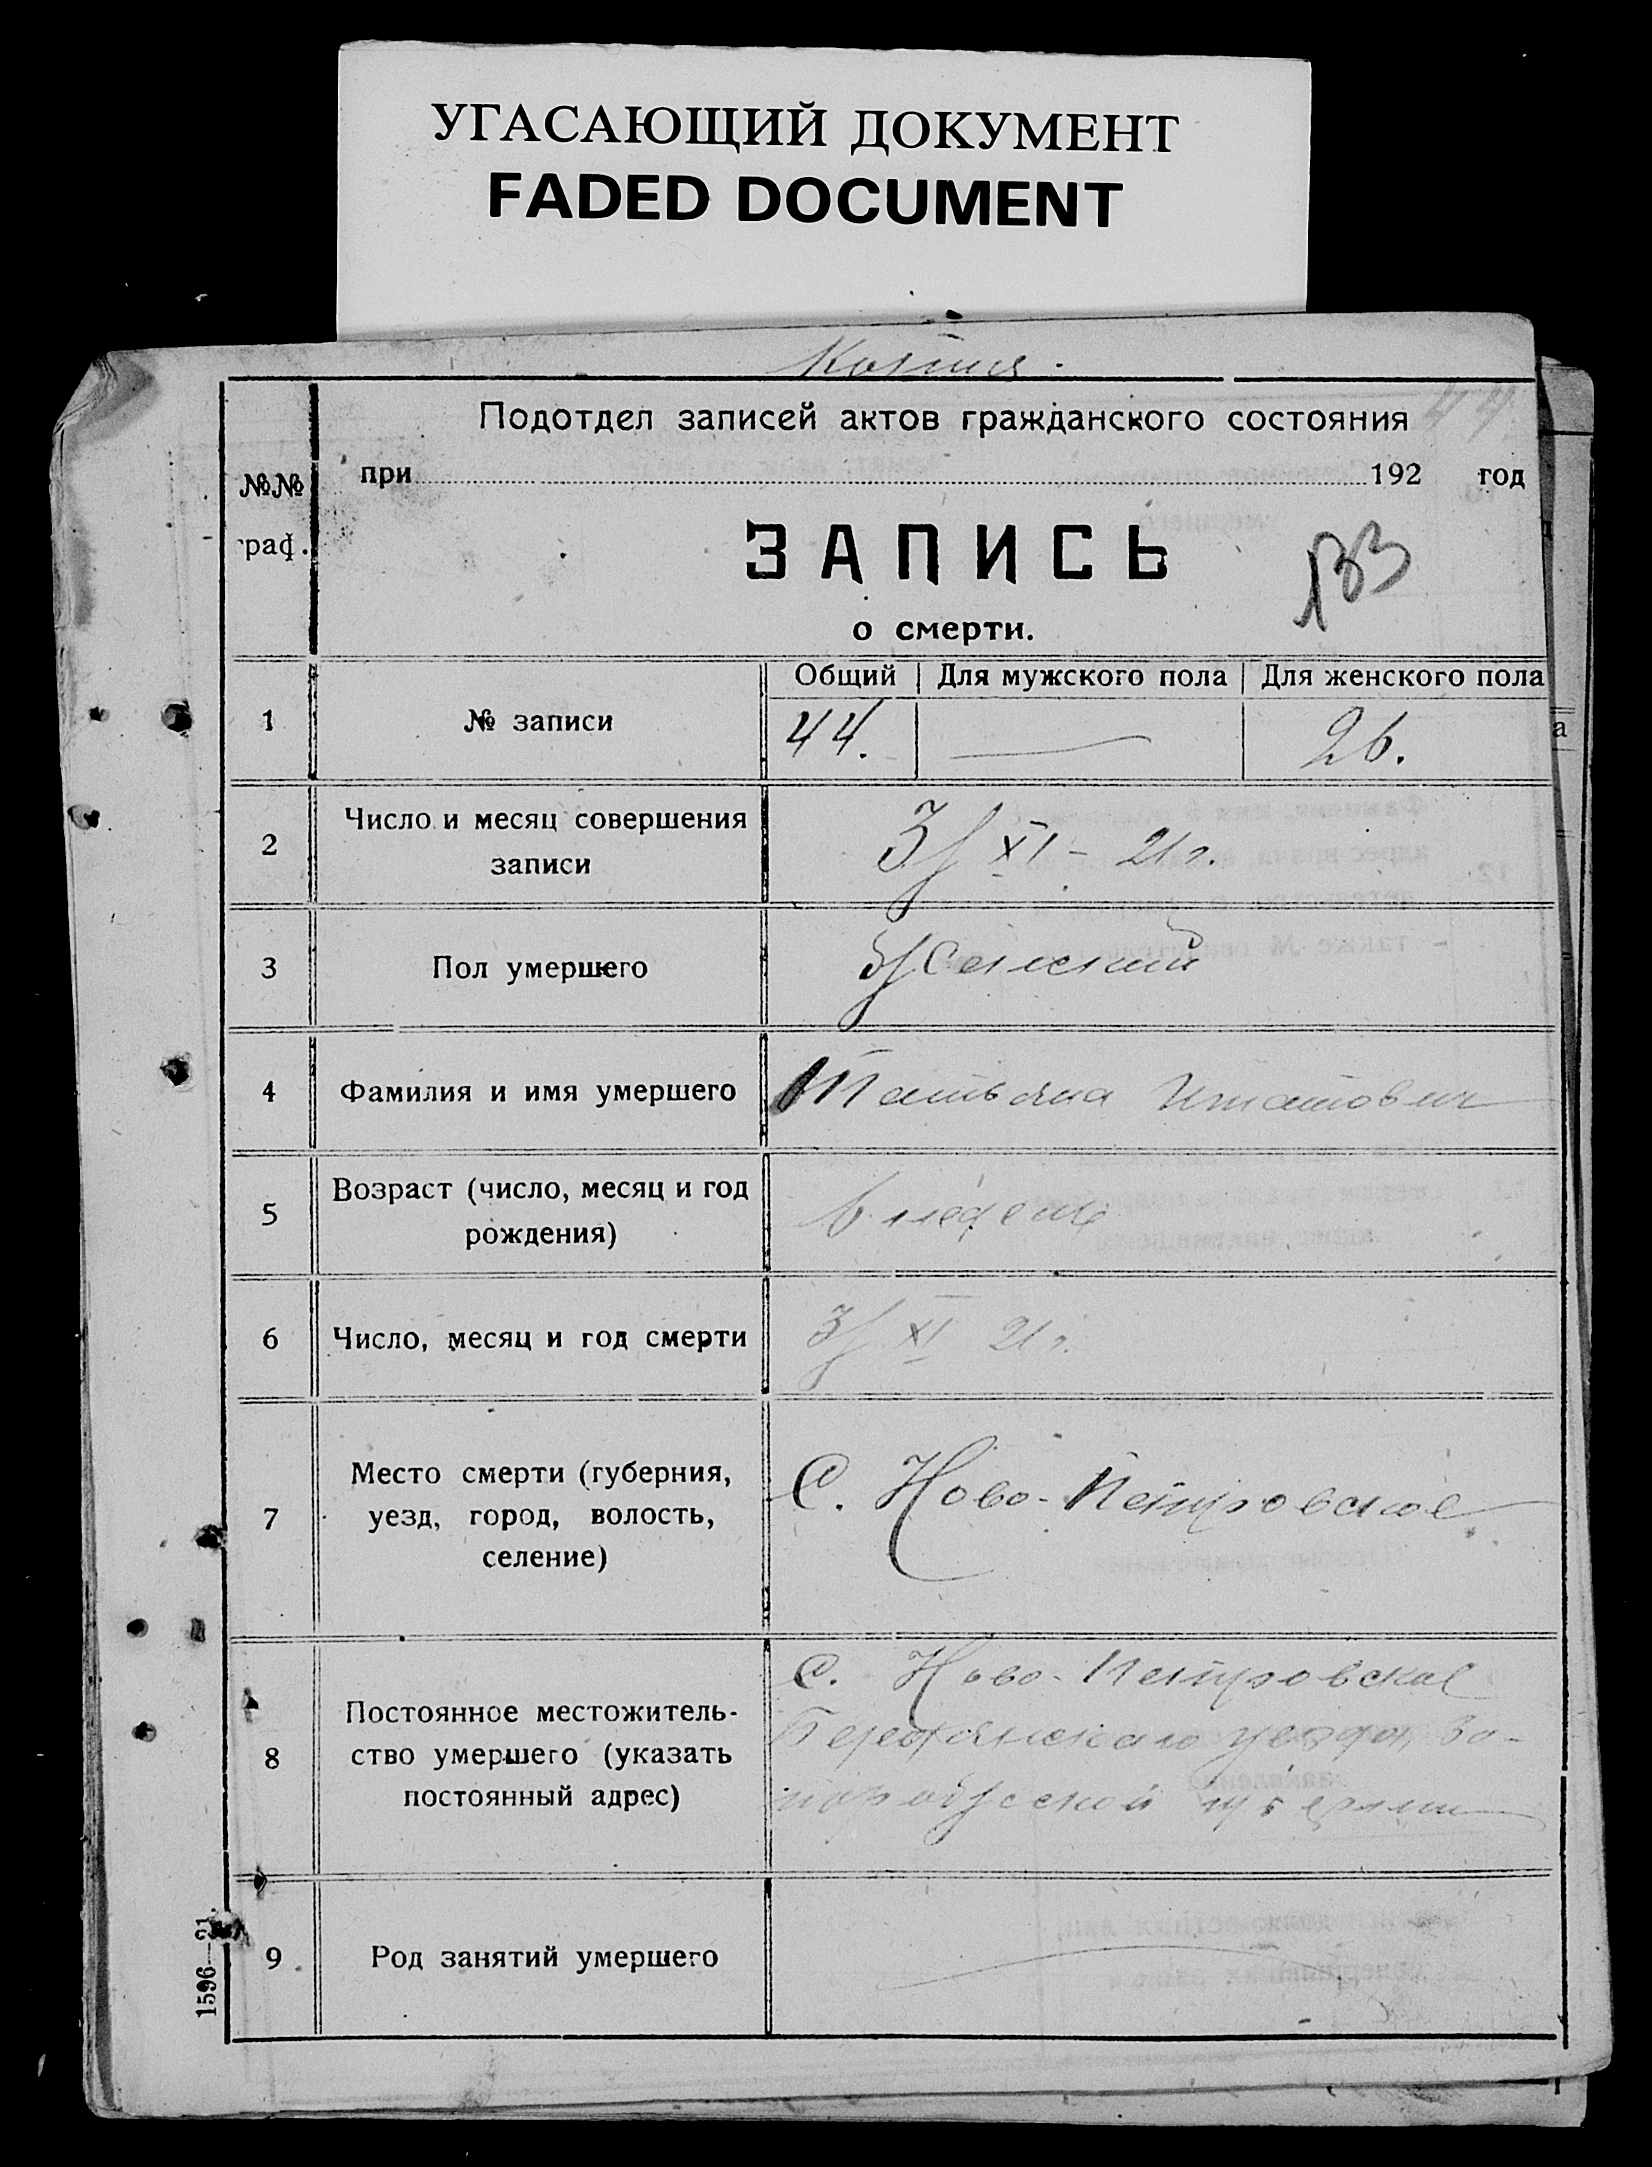 УГАСАЮЩИЙ ДОКУМЕНТ
FADED DOCUMENT
Копия.
Подотдел записей актов гражданского состояния
при 192 год
№№
граф.
ЗАПИСЬ
133
о смерти.
Общий Для мужского пола Для женского пола
1 № записи 44. — 26.
2 Число и месяц совершения
записи
3/XI - 21 г.
3 Пол умершего Женский
4 Фамилия и имя умершего Татьяна
5 Возраст (число, месяц и год
рождения)
6 недель
6 Число, месяц и год смерти 3/XI 21 г.
7 Место смерти (губерния,
уезд, город, волость,
селение)
С. Ново-Петровское
8 Постоянное местожитель-
ство умершего (указать
постоянный адрес)
С. Ново-Петровское
Бердянского уезда, За-
порожской губернии
9 Род занятий умершего —
1596—21.